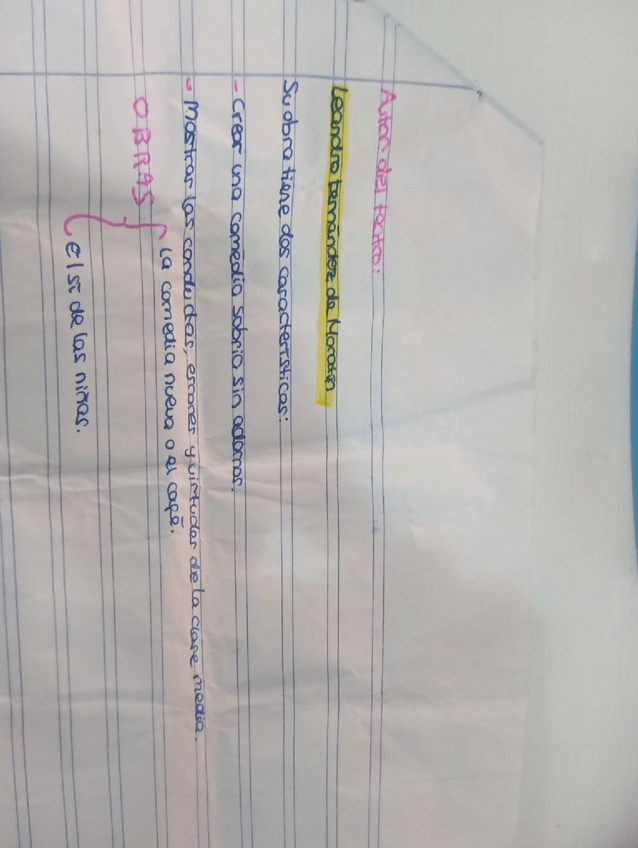 Autor del teatro:
Leandro Fernández de Moratín
Su obra tiene dos características:
- Crear una comedia sobria sin adornos.
- Mostrar las conductas, errores y virtudes de la clase media.
OBRAS { La comedia nueva o el café.
{ el sí de las niñas.